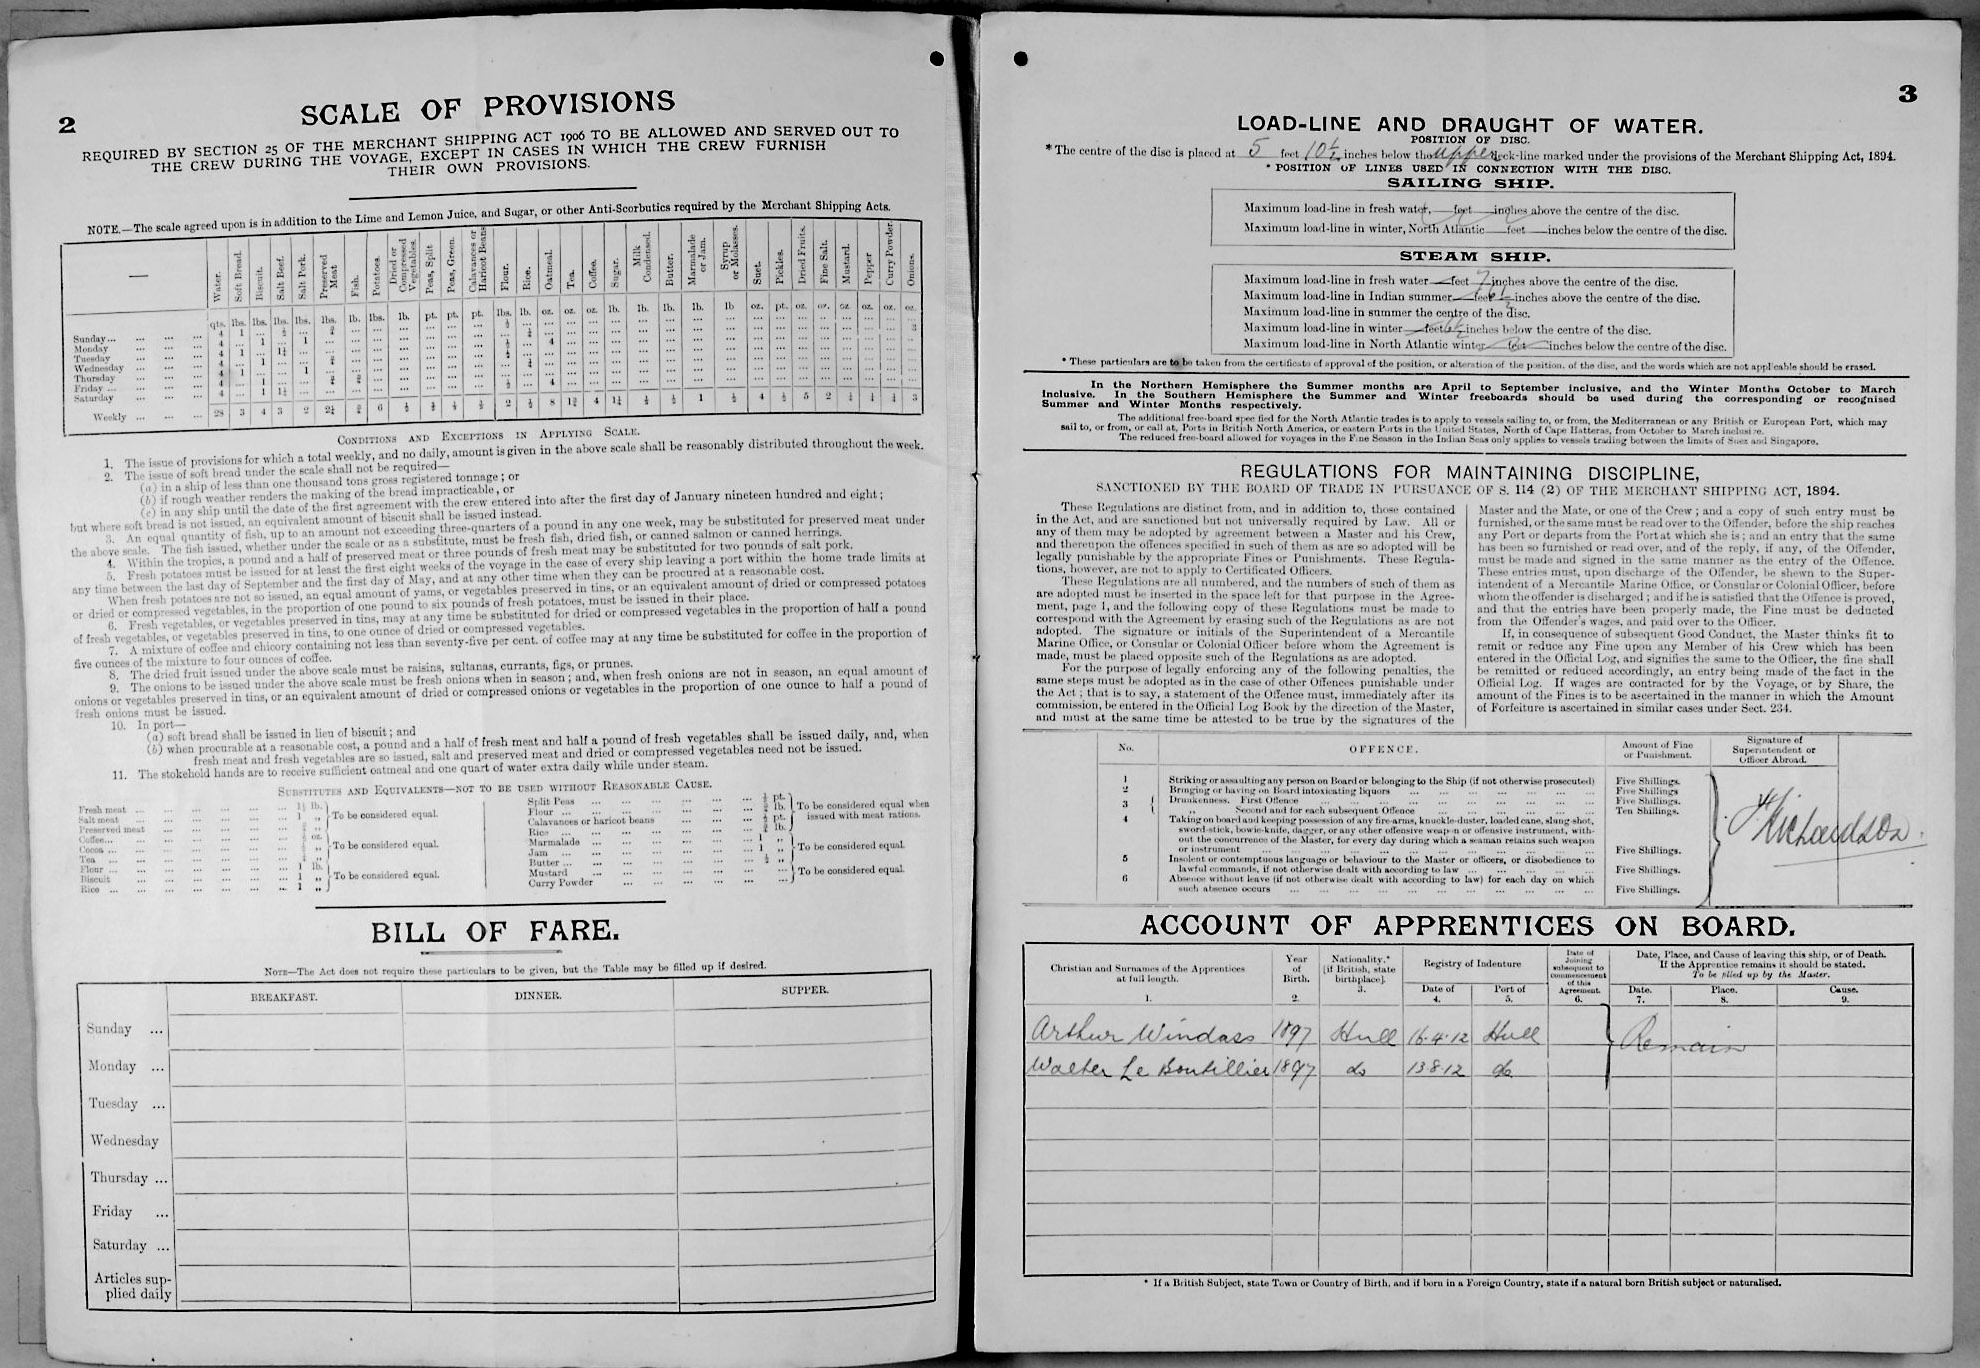 2
SCALE OF PROVISIONS
REQUIRED BY SECTION 25 OF THE MERCHANT SHIPPING ACT 1906 TO BE ALLOWED AND SERVED OUT TO
THE CREW DURING THE VOYAGE, EXCEPT IN CASES IN WHICH THE CREW FURNISH
THEIR OWN PROVISIONS.
NOTE.—The scale agreed upon is in addition to the Lime and Lemon Juice, and Sugar, or other Anti-Scorbutics required by the Merchant Shipping Acts.
— Water. Soft Bread. Biscuit. Salt Beef. Salt Pork. Preserved Meat Fish. Potatoes. Dried or Compressed Vegetables. Peas, Split Peas, Green. Calavances or Haricot Beans Flour. Rice. Oatmeal. Tea. Coffee. Sugar. Milk Condensed. Butter. Marmalade or Jam. Syrup or Molasses. Suet. Pickles. Dried Fruits. Fine Salt. Mustard. Pepper Curry Powder. Onions.
qts. lbs. lbs. lbs. lbs. lbs. lbs. lbs. lb. pt. pt. pt. lbs. lb. oz. oz. oz. lb. lb. lb. lb. lb oz. pt. oz. oz. oz. oz. oz. oz.
Sunday... ... ...
Monday ... ... ...
Tuesday ... ... ...
Wednesday ... ... ...
Thursday ... ... ...
Friday ... ... ...
Saturday ... ... ...
Weekly ... ... ... 28 3 4 3 2 2¼ ¾ 6 ½ ⅔ ⅓ ⅔ 2 ½ 8 1¾ 4 1¼ ⅓ ½ 1 ½ 4 ½ 5 2 ¼ ¼ ¼ 3
CONDITIONS AND EXCEPTIONS IN APPLYING SCALE.
1. The issue of provisions for which a total weekly, and no daily, amount is given in the above scale shall be reasonably distributed throughout the week.
2. The issue of soft bread under the scale shall not be required—
(a) in a ship of less than one thousand tons gross registered tonnage; or
(b) if rough weather renders the making of the bread impracticable, or
(c) in any ship until the date of the first agreement with the crew entered into after the first day of January nineteen hundred and eight;
but where soft bread is not issued, an equivalent amount of biscuit shall be issued instead.
3. An equal quantity of fish, up to an amount not exceeding three-quarters of a pound in any one week, may be substituted for preserved meat under
the above scale. The fish issued, whether under the scale or as a substitute, must be fresh fish, dried fish, or canned salmon or canned herrings.
4. Within the tropics, a pound and a half of preserved meat or three pounds of fresh meat may be substituted for two pounds of salt pork.
5. Fresh potatoes must be issued for at least the first eight weeks of the voyage in the case of every ship leaving a port within the home trade limits at
any time between the last day of September and the first day of May, and at any other time when they can be procured at a reasonable cost.
When fresh potatoes are not so issued, an equal amount of yams, or vegetables preserved in tins, or an equivalent amount of dried or compressed potatoes
or dried or compressed vegetables, in the proportion of one pound to six pounds of fresh potatoes, must be issued in their place.
6. Fresh vegetables, or vegetables preserved in tins, may at any time be substituted for dried or compressed vegetables in the proportion of half a pound
of fresh vegetables, or vegetables preserved in tins, to one ounce of dried or compressed vegetables.
7. A mixture of coffee and chicory containing not less than seventy-five per cent. of coffee may at any time be substituted for coffee in the proportion of
five ounces of the mixture to four ounces of coffee.
8. The dried fruit issued under the above scale must be raisins, sultanas, currants, figs, or prunes.
9. The onions to be issued under the above scale must be fresh onions when in season; and, when fresh onions are not in season, an equal amount of
onions or vegetables preserved in tins, or an equivalent amount of dried or compressed onions or vegetables in the proportion of one ounce to half a pound of
fresh onions must be issued.
10. In port—
(a) soft bread shall be issued in lieu of biscuit; and
(b) when procurable at a reasonable cost, a pound and a half of fresh meat and half a pound of fresh vegetables shall be issued daily, and, when
fresh meat and fresh vegetables are so issued, salt and preserved meat and dried or compressed vegetables need not be issued.
11. The stokehold hands are to receive sufficient oatmeal and one quart of water extra daily while under steam.
SUBSTITUTES AND EQUIVALENTS—NOT TO BE USED WITHOUT REASONABLE CAUSE.
Fresh meat ... 1½ lb.
Salt meat ... 1 „ To be considered equal.
Preserved meat ... ¾ „
Coffee... ... ½ oz.
Cocoa ... ... To be considered equal.
Tea ... ... ¼ „
Flour ... ... 1 lb.
Biscuit ... 1 „ To be considered equal.
Rice ... ... 1 „
Split Peas ... ⅓ pt.
Flour ... ½ lb. To be considered equal when
Calavances or haricot beans ... ⅓ pt. issued with meat rations.
Rice ... lb.
Marmalade ... 1 „
Jam ... 1 „ To be considered equal.
Butter ... ½ „
Mustard ...
Curry Powder ... To be considered equal.
BILL OF FARE.
NOTE—The Act does not require these particulars to be given, but the Table may be filled up if desired.
BREAKFAST. DINNER. SUPPER.
Sunday ...
Monday ...
Tuesday ...
Wednesday
Thursday ...
Friday ...
Saturday ...
Articles sup-
plied daily
3
LOAD-LINE AND DRAUGHT OF WATER.
POSITION OF DISC.
*The centre of the disc is placed at 5 feet 10½ inches below the upper deck-line marked under the provisions of the Merchant Shipping Act, 1894.
* POSITION OF LINES USED IN CONNECTION WITH THE DISC.
SAILING SHIP.
Maximum load-line in fresh water, feet inches above the centre of the disc.
Maximum load-line in winter, North Atlantic feet inches below the centre of the disc.
STEAM SHIP.
Maximum load-line in fresh water feet 7 inches above the centre of the disc.
Maximum load-line in Indian summer feet 6½ inches above the centre of the disc.
Maximum load-line in summer the centre of the disc.
Maximum load-line in winter feet 6½ inches below the centre of the disc.
Maximum load-line in North Atlantic winter feet inches below the centre of the disc.
* These particulars are to be taken from the certificate of approval of the position, or alteration of the position, of the disc, and the words which are not applicable should be erased.
In the Northern Hemisphere the Summer months are April to September inclusive, and the Winter Months October to March
inclusive. In the Southern Hemisphere the Summer and Winter freeboards should be used during the corresponding or recognised
Summer and Winter Months respectively.
The additional free-board specified for the North Atlantic trades is to apply to vessels sailing to, or from, the Mediterranean or any British or European Port, which may
sail to, or from, or call at, Ports in British North America, or eastern Ports in the United States, North of Cape Hatteras, from October to March inclusive.
The reduced free-board allowed for voyages in the Fine Season in the Indian Seas only applies to vessels trading between the limits of Suez and Singapore.
REGULATIONS FOR MAINTAINING DISCIPLINE,
SANCTIONED BY THE BOARD OF TRADE IN PURSUANCE OF S. 114 (2) OF THE MERCHANT SHIPPING ACT, 1894.
These Regulations are distinct from, and in addition to, those contained
in the Act, and are sanctioned but not universally required by Law. All or
any of them may be adopted by agreement between a Master and his Crew,
and thereupon the offences specified in such of them as are so adopted will be
legally punishable by the appropriate Fines or Punishments. These Regula-
tions, however, are not to apply to Certificated Officers.
These Regulations are all numbered, and the numbers of such of them as
are adopted must be inserted in the space left for that purpose in the Agree-
ment, page 1, and the following copy of these Regulations must be made to
correspond with the Agreement by erasing such of the Regulations as are not
adopted. The signature or initials of the Superintendent of a Mercantile
Marine Office, or Consular or Colonial Officer before whom the Agreement is
made, must be placed opposite such of the Regulations as are adopted.
For the purpose of legally enforcing any of the following penalties, the
same steps must be adopted as in the case of other Offences punishable under
the Act; that is to say, a statement of the Offence must, immediately after its
commission, be entered in the Official Log Book by the direction of the Master,
and must at the same time be attested to be true by the signatures of the
Master and the Mate, or one of the Crew; and a copy of such entry must be
furnished, or the same must be read over to the Offender, before the ship reaches
any Port or departs from the Port at which she is; and an entry that the same
has been so furnished or read over, and of the reply, if any, of the Offender,
must be made and signed in the same manner as the entry of the Offence.
These entries must, upon discharge of the Offender, be shewn to the Super-
intendent of a Mercantile Marine Office, or Consular or Colonial Officer, before
whom the offender is discharged; and if he is satisfied that the Offence is proved,
and that the entries have been properly made, the Fine must be deducted
from the Offender's wages, and paid over to the Officer.
If, in consequence of subsequent Good Conduct, the Master thinks fit to
remit or reduce any Fine upon any Member of his Crew which has been
entered in the Official Log, and signifies the same to the Officer, the fine shall
be remitted or reduced accordingly, an entry being made of the fact in the
Official Log. If wages are contracted for by the Voyage, or by Share, the
amount of the Fines is to be ascertained in the manner in which the Amount
of Forfeiture is ascertained in similar cases under Sect. 234.
No. OFFENCE. Amount of Fine or Punishment. Signature of Superintendent or Officer Abroad.
1 Striking or assaulting any person on Board or belonging to the Ship (if not otherwise prosecuted) Five Shillings.
2 Bringing or having on Board intoxicating liquors ... Five Shillings
3 Drunkenness. First Offence ... Five Shillings.
Second and for each subsequent Offence ... Ten Shillings.
4 Taking on board and keeping possession of any fire-arms, knuckle-duster, loaded cane, slung-shot,
sword-stick, bowie-knife, dagger, or any other offensive weapon or offensive instrument, with-
out the concurrence of the Master, for every day during which a seaman retains such weapon
or instrument ... Five Shillings.
5 Insolent or contemptuous language or behaviour to the Master or officers, or disobedience to
lawful commands, if not otherwise dealt with according to law ... Five Shillings.
6 Absence without leave (if not otherwise dealt with according to law) for each day on which
such absence occurs ... Five Shillings.
Richardson
ACCOUNT OF APPRENTICES ON BOARD.
Christian and Surnames of the Apprentices at full length. 1. Year of Birth. 2 Nationality.* [if British, state birthplace]. 3. Registry of Indenture Date of 4. Port of 5. Date of Joining subsequent to commencement of this Agreement. 6. Date, Place, and Cause of leaving this ship, or of Death. If the Apprentice remains it should be stated. To be filled up by the Master. Date. 7. Place. 8. Cause. 9.
Arthur Windass 1897 Hull 16.4.12 Hull Remain
Walter Le Boutillier 1897 do 13.8.12 do
* If a British Subject, state Town or Country of Birth, and if born in a Foreign Country, state if a natural born British subject or naturalised.